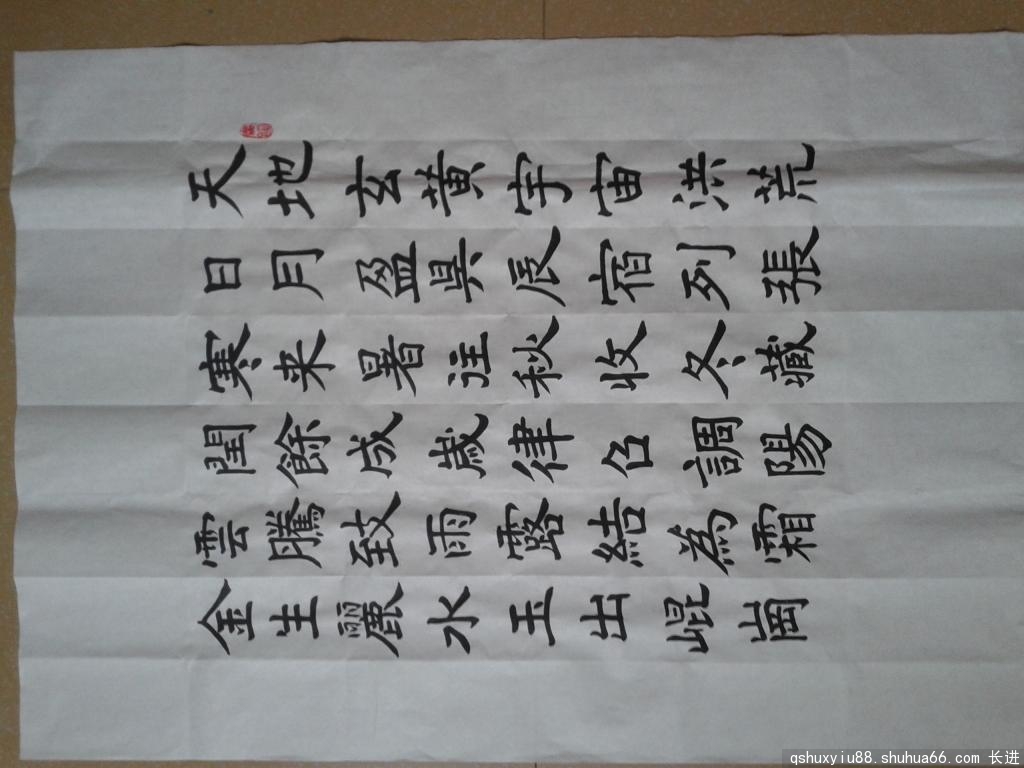 天地玄黄宇宙洪荒
日月盈昃辰宿列張
寒来暑往秋收冬藏
閏餘成歲律召調陽
雲騰致雨露結為霜
金生麗水玉出崐崗
qshuxyiu88.shuhua66.com 长进